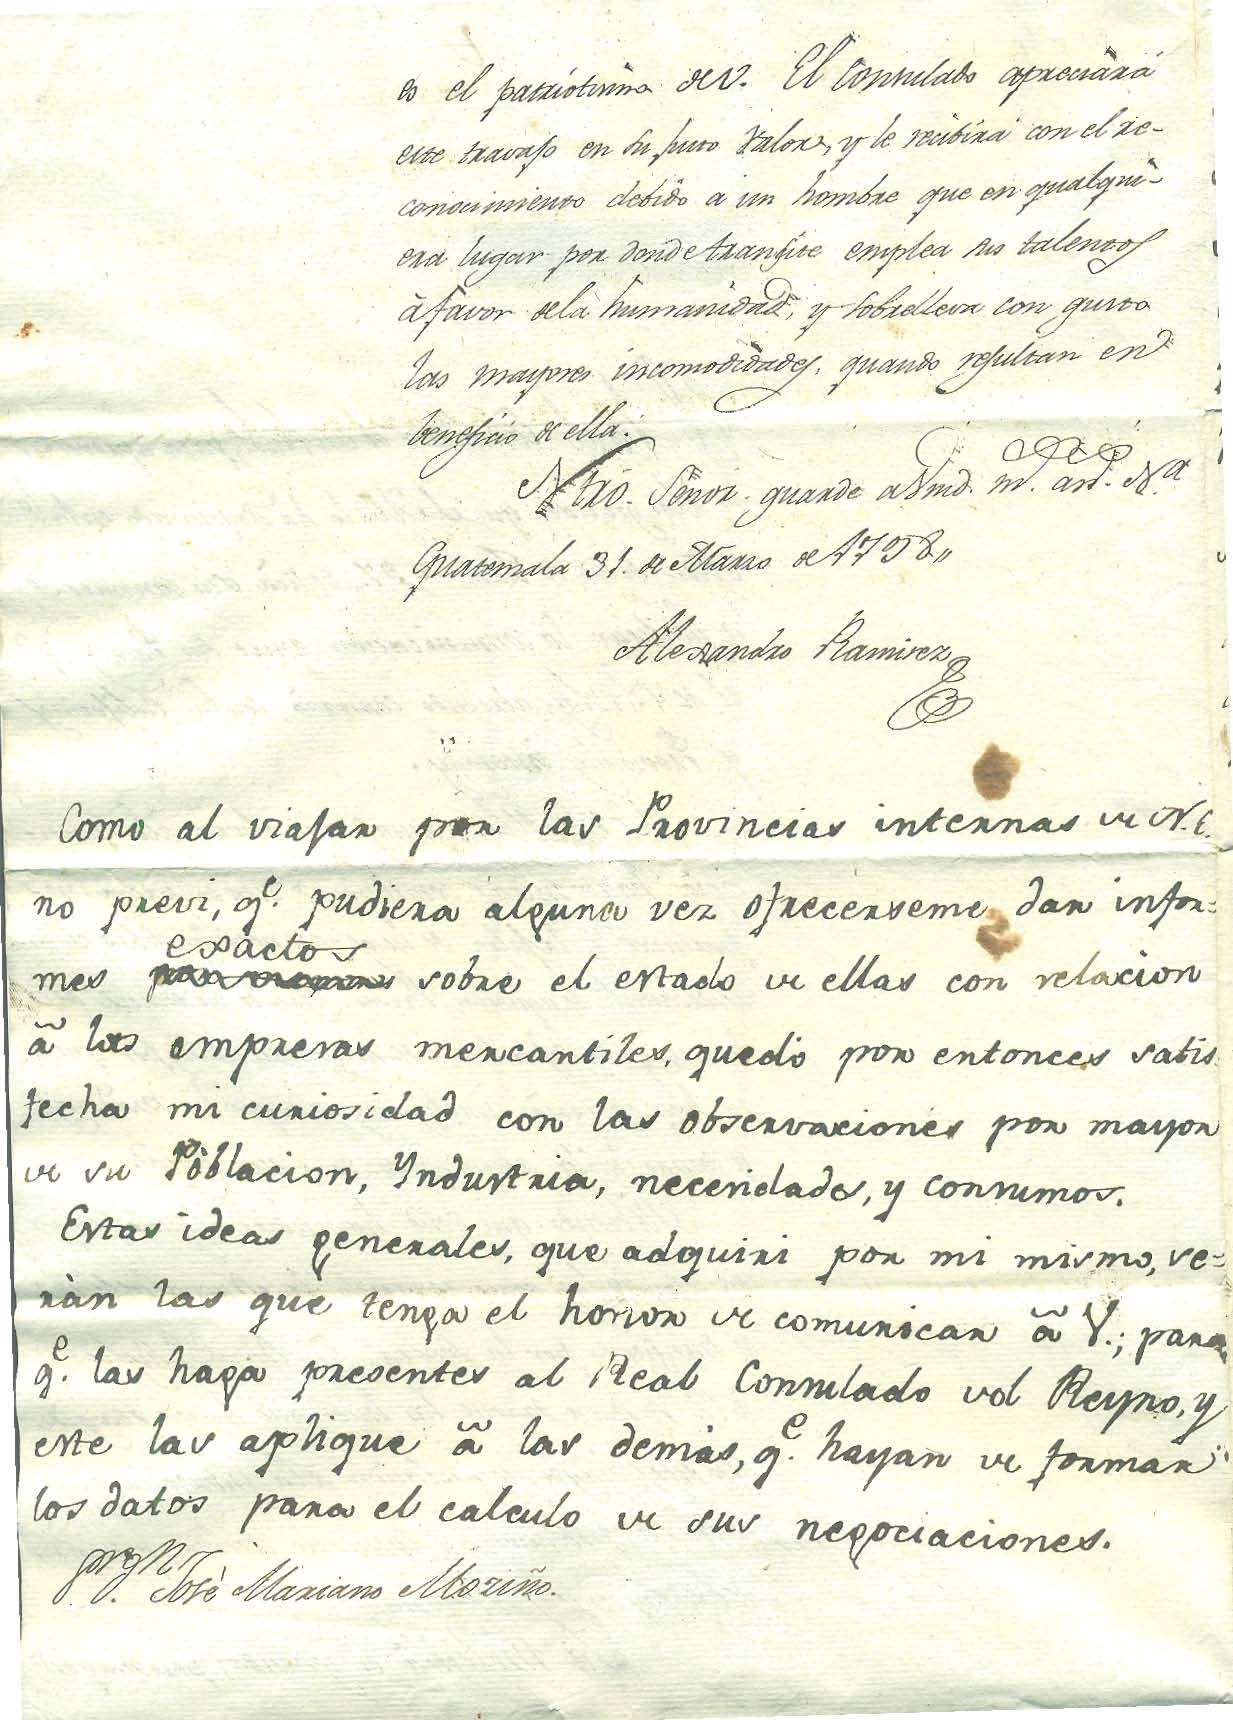 es el patriotismo de V. El Consulado apreciará
este travajo en su justo valor, y le recibirá con el re-
conocimiento debido a un hombre que en qualqui-
era lugar por donde transite emplea sus talentos
à favor de la humanidad, y sobrelleva con gusto
las mayores incomodidades, quando resultan en
beneficio de ella.
Ntro. Señor guarde a Vmd. m. an. Na.
Guatemala 31. de Marzo de 1798,,
Alexandro Ramirez
Como al viajar por las Provincias internas de N. E.
no previ, qe. pudiera alguna vez ofrecerseme dar infor=
exactos
mes sobre el estado de ellas con relacion
ã las empresas mercantiles, quedò por entonces satis
fecha mi curiosidad con las observaciones por mayor
de su Poblacion, Yndustria, necesidades, y consumos.
Estas ideas generales, que adquiri por mi mismo, se=
ràn las que tenga el honor de comunicar ã V.; para
qe. las haga presentes al Real Consulado del Reyno, y
este las aplique ã las demàs, qe. hayan de formar
los datos para el calculo de sus negociaciones.
Josè Mariano Moziño.